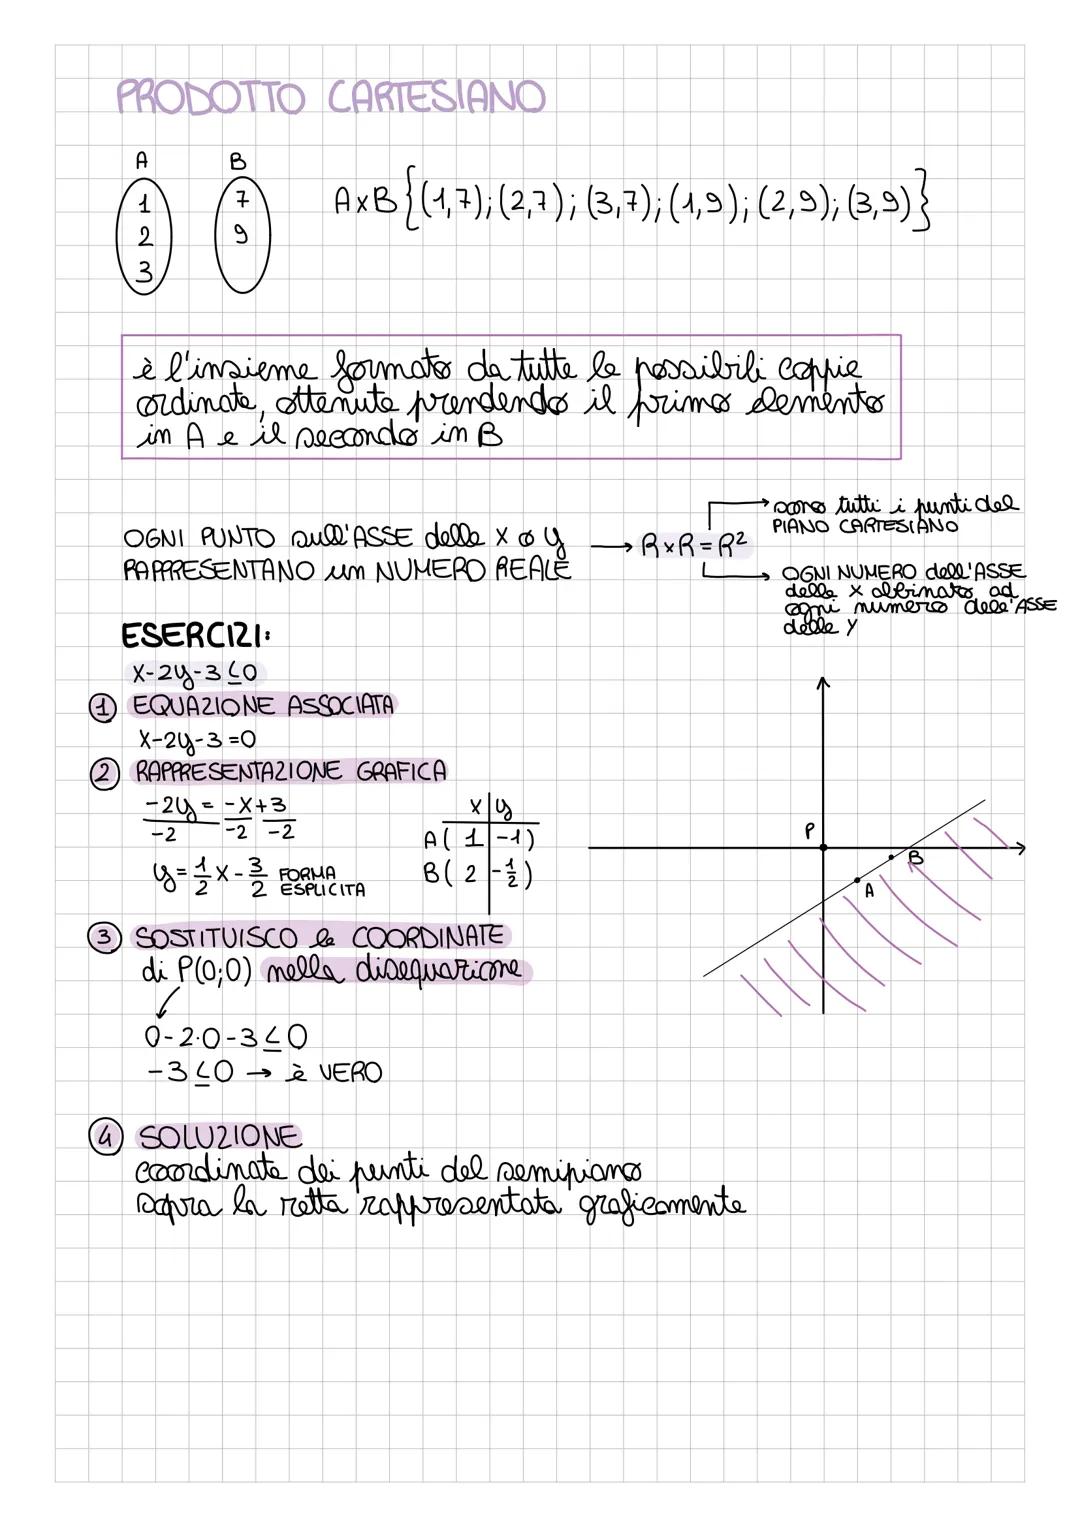 PRODOTTO CARTESIANO
A B
1 7
2 9
3
AxB {(1,7);(2,7);(3,7);(1,9);(2,9);(3,9)}
è l'insieme formato da tutte le possibili coppie
ordinate, ottenute prendendo il primo elemento
in A e il secondo in B
OGNI PUNTO sull'ASSE delle x o y
RAPPRESENTANO un NUMERO REALE
→ R×R = R²
sono tutti i punti del
PIANO CARTESIANO
OGNI NUMERO dell'ASSE
delle x abbinato ad
ogni numero dell'ASSE
delle y
ESERCIZI:
x-2y-3≤0
1 EQUAZIONE ASSOCIATA
x-2y-3=0
2 RAPPRESENTAZIONE GRAFICA
-2y/-2 = -x/-2 +3/-2
y=1/2x-3/2 FORMA
ESPLICITA
x | y
A( 1 | -1)
B( 2 | -1/2)
P
B
A
3 SOSTITUISCO le COORDINATE
di P(0;0) nella disequazione
0-2·0-3≤0
-3≤0 → è VERO
4 SOLUZIONE
coordinate dei punti del semipiano
sopra la retta rappresentata graficamente